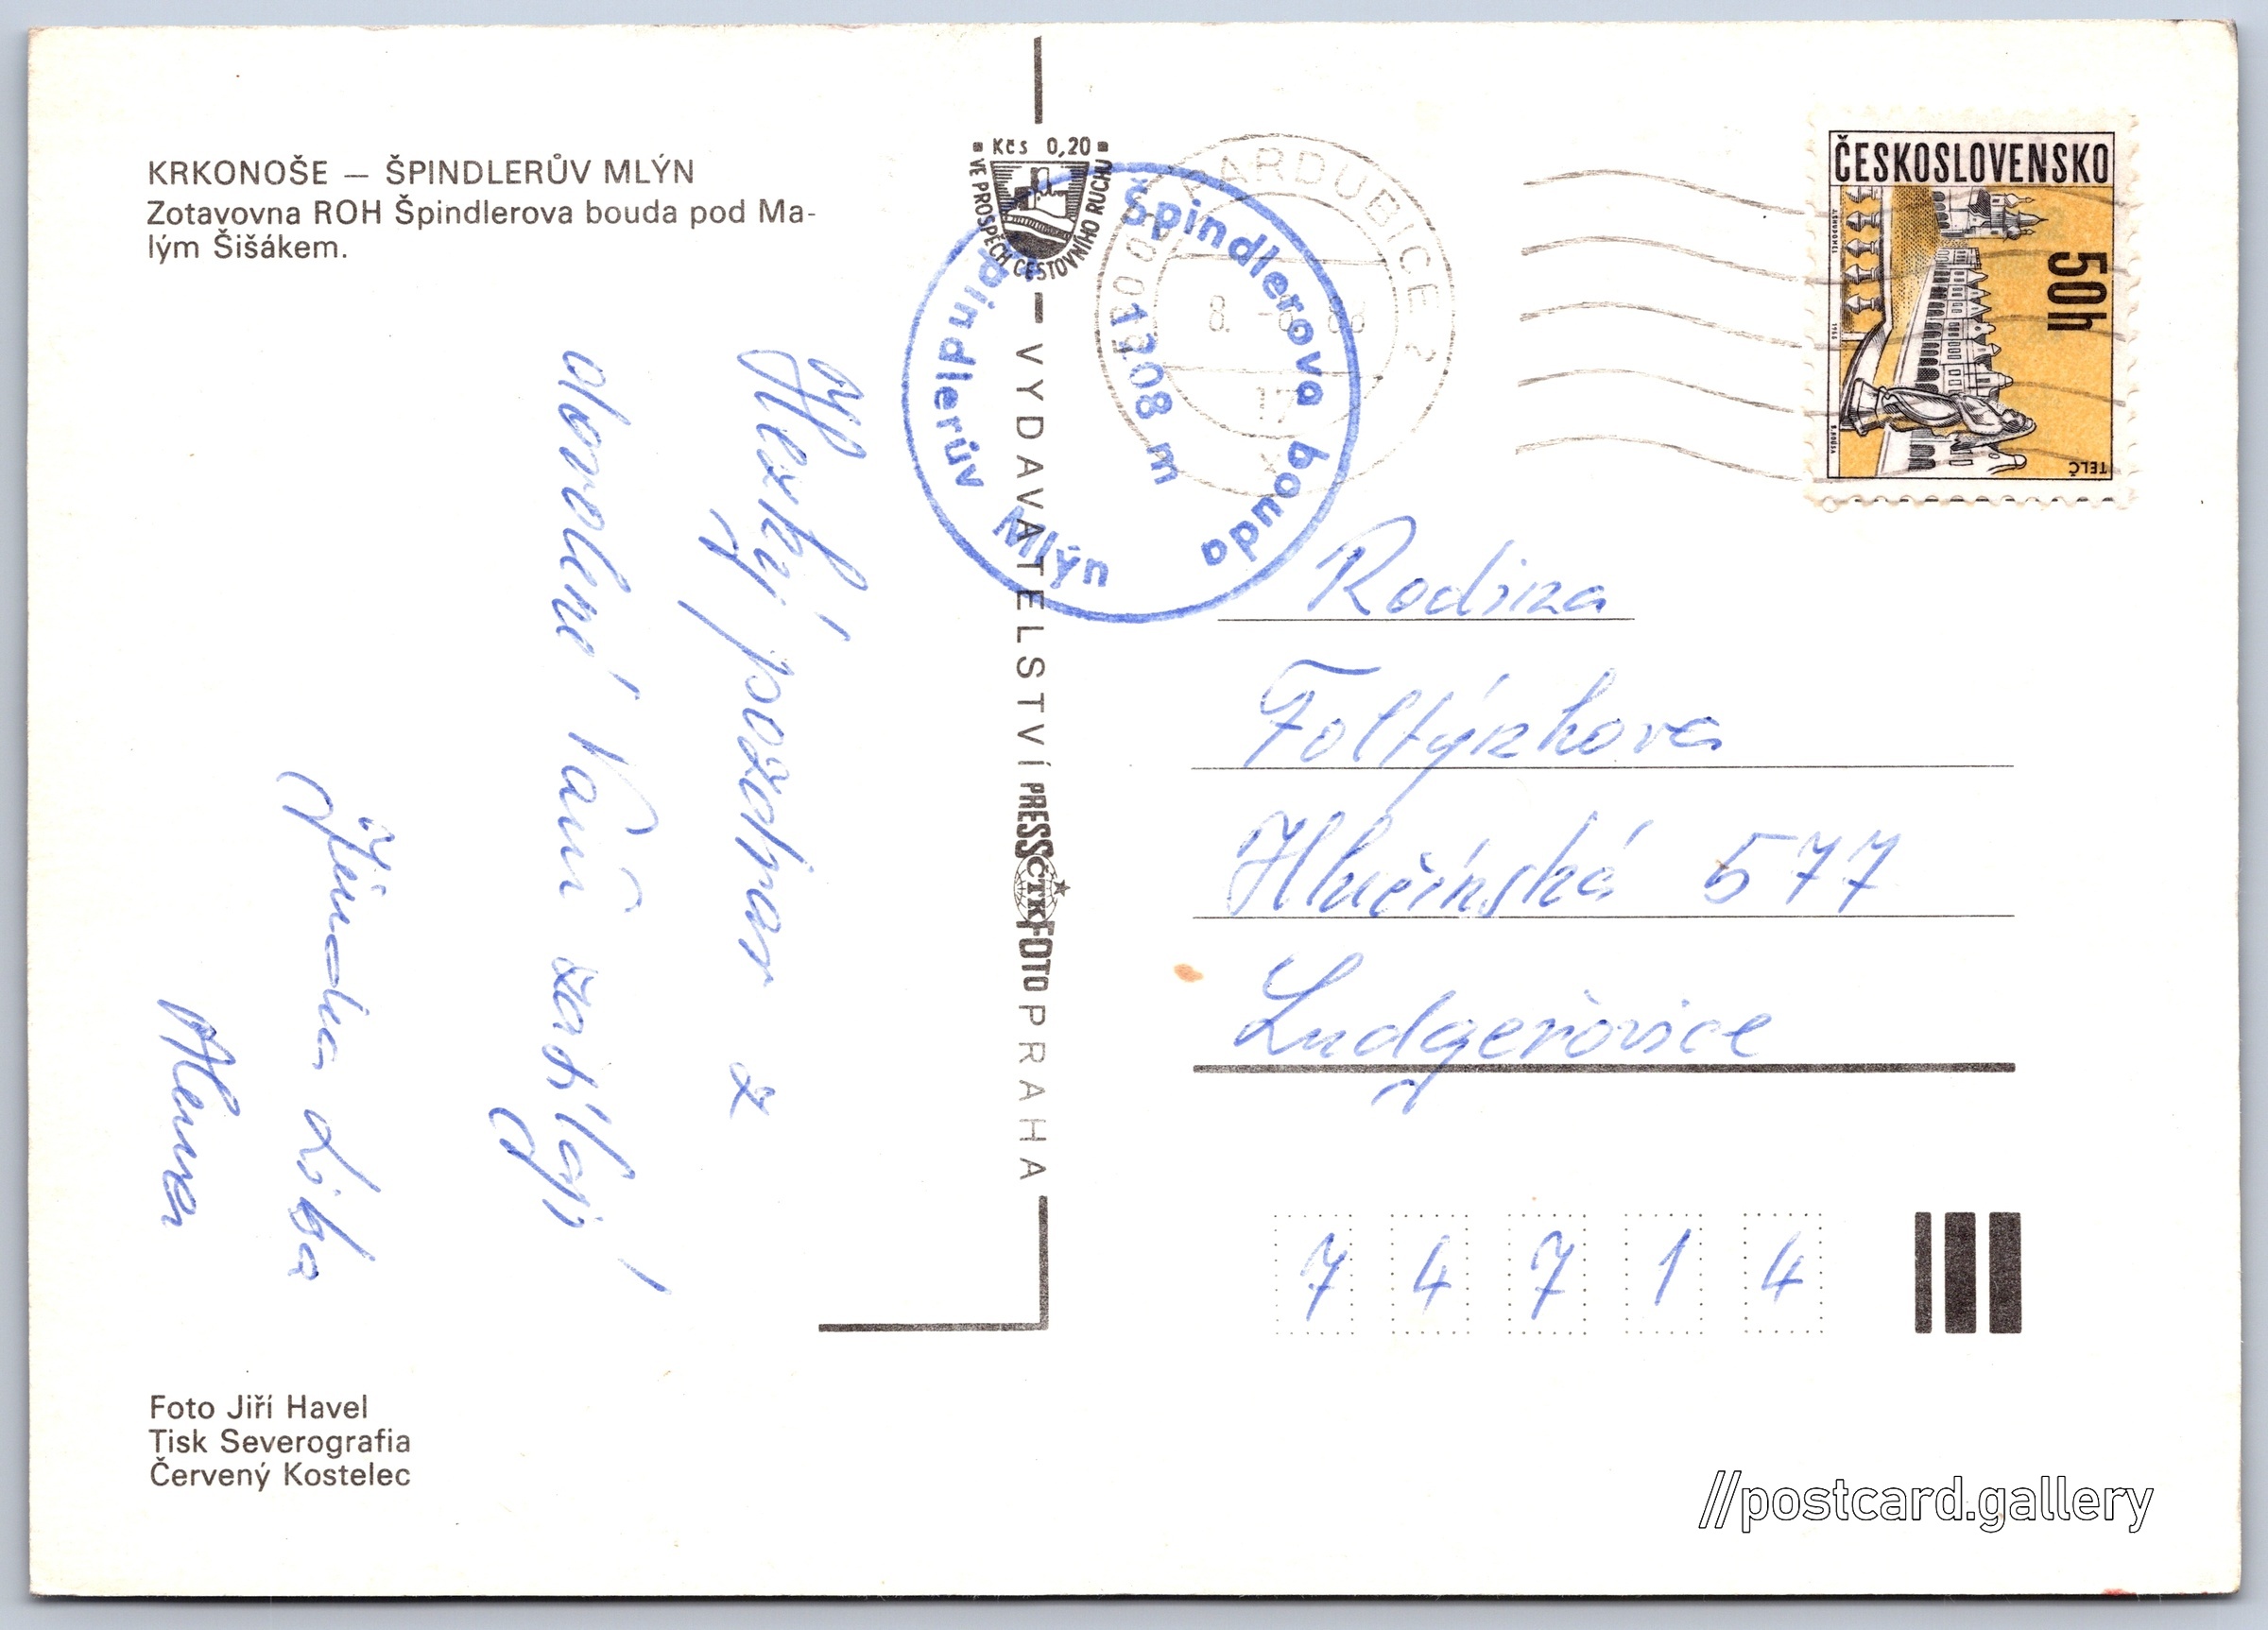 KRKONOŠE — ŠPINDLERŮV MLÝN
Zotavovna ROH Špindlerova bouda pod Ma-
lým Šišákem.
Hezký pozdrav z
dovolené Vám zasílají
Jindra Liba
Alena
Foto Jiří Havel
Tisk Severografia
Červený Kostelec
Kčs 0,20
VE PROSPĚCH CESTOVNÍHO RUCHU
VYDAVATELSTVÍ PRESSČTKFOTO PRAHA
Špindlerova bouda
1208 m
Špindlerův Mlýn
PARDUBICE 2
ČESKOSLOVENSKO
50h
TELČ
Rodina
Foltýnkova
Hlučínská 577
Ludgeřovice
7 4 7 1 4
//postcard.gallery